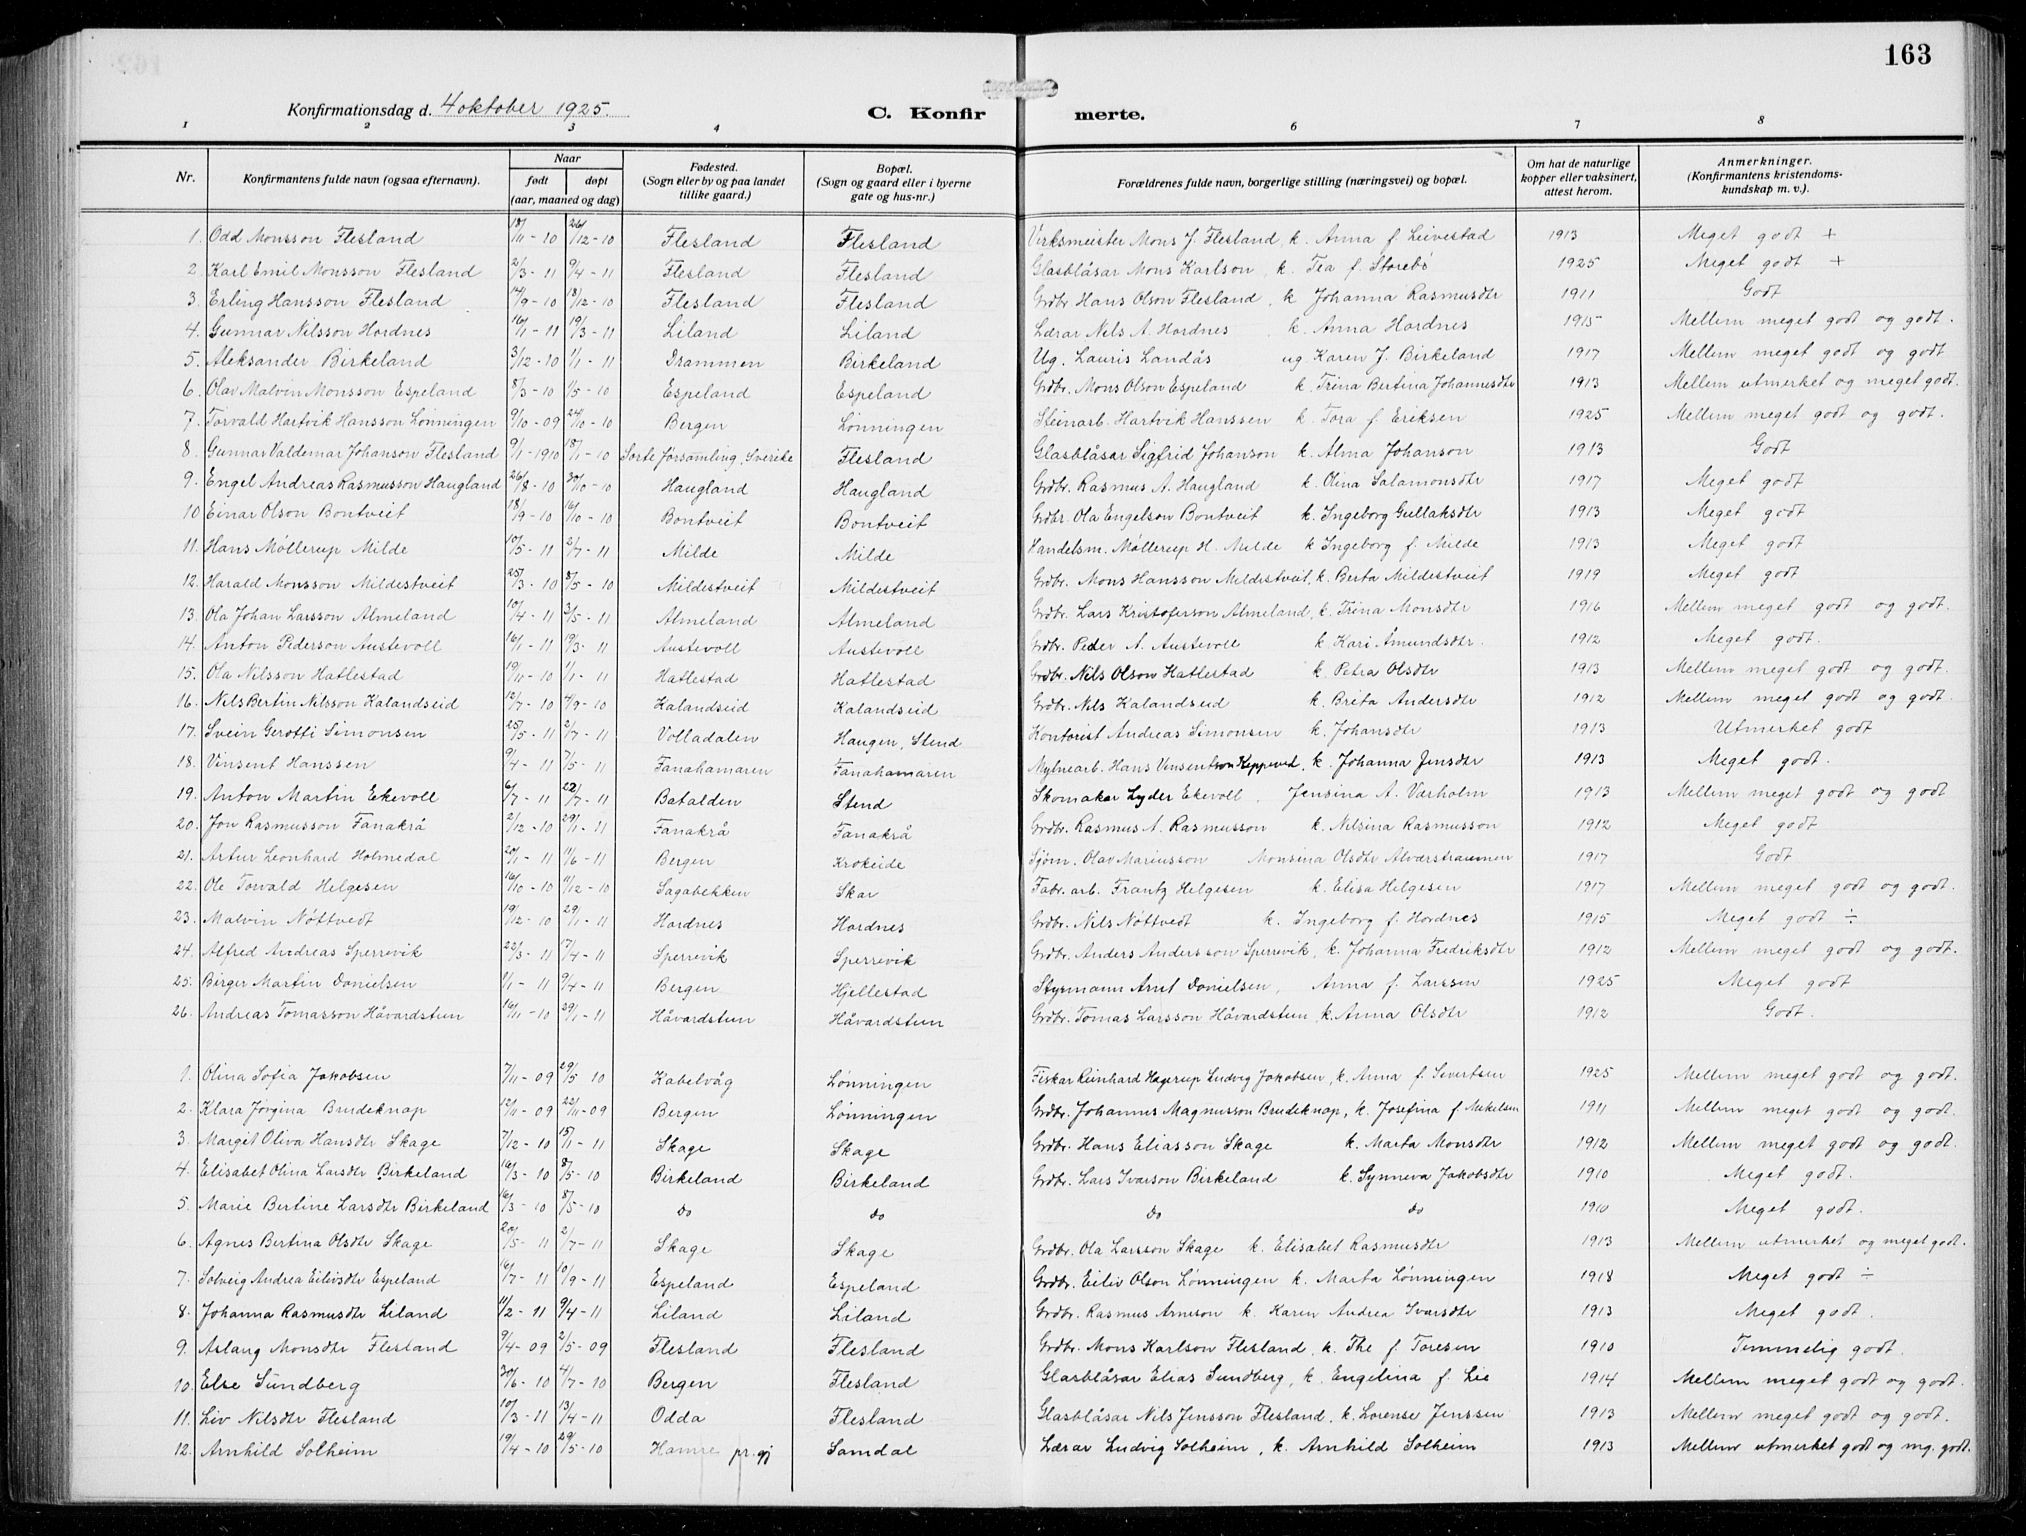 163
Konfirmationsdag d. 4 oktober 1925.
C. Konfirmerte.
1 2 3 4 6 7 8
Nr. Konfirmantens fulde navn (ogsaa efternavn). Naar født døpt (aar, maaned og dag) Fødested. (Sogn eller by og paa landet tillike gaard.) Bopæl. (Sogn og gaard eller i byerne gate og hus-nr.) Forældrenes fulde navn, borgerlige stilling (næringsvei) og bopæl. Om hat de naturlige kopper eller vaksinert, attest herom. Anmerkninger. (Konfirmantens kristendomskundskap m. v.).
1. Odd Monsson Flesland 18/11-10 26/12-10 Flesland Flesland Virksmeister Mons J. Flesland, k. Anna f. Leivestad 1913 Meget godt +
2. Karl Emil Monsson Flesland 2/3-11 9/4-11 Flesland Flesland Glasblåsar Mons Karlson, k. Tea f. Storebö 1925 Meget godt +
3. Erling Hansson Flesland 14/9-10 18/12-10 Flesland Flesland Grdbr. Hans Olson Flesland, k Johanna Rasmusdtr 1911 Godt
4. Gunnar Nilsson Hordnes 16/1-11 19/3-11 Liland Liland Lærar Nils A. Hordnes k. Anna Hordnes 1915 Mellem meget godt og godt.
5. Aleksander Birkeland 3/12-10 1/1-11 Drammen Birkeland Ug. Lauris Landås ug Karen J. Birkeland 1917 Mellem meget godt og godt
6. Olav Malvin Monsson Espeland 8/3-10 1/5-10 Espeland Espeland Grdbr. Mons Olson Espeland k. Trina Bertina Johannesdtr 1913 Mellem utmerket og meget godt.
7. Torvald Hartvik Hansson Lönningen 9/10-09 24/10-10 Bergen Lönningen Steinarb. Hartvik Hanssen k. Tora f. Eriksen 1925 Mellem meget godt og godt.
8. Gunnar Valdemar Johanson Flesland 9/1-1910 18/1-10 Sorte Forsamling, Sverike Flesland Glasblåsar Sigfrid Johanson k. Alma Johanson 1913 Godt
9. Engel Andreas Rasmusson Haugland 26/8-10 30/10-10 Haugland Haugland Grdbr. Rasmus A. Haugland k. Olina Salamonsdtr 1917 Meget godt
10 Einar Olson Bontveit 18/9-10 16/10-10 Bontveit Bontveit Grdbr. Ola Engelson Bontveit k. Ingeborg Gullaksdtr 1913 Meget godt
11. Hans Möllerup Milde 10/5-11 2/7-11 Milde Milde Handelsm. Möllerup H. Milde k Ingeborg f. Milde 1913 Meget godt
12. Harald Monsson Mildestveit 25/3-10 8/5-10 Mildestveit Mildestveit Grdbr. Mons Hansson Mildestveit, k. Berta Mildestveit 1919 Meget godt
13. Ola Johan Larsson Almeland 10/4-11 3/5-11 Almeland Almeland Grdbr. Lars Kristoferson Almeland, k. Trina Monsdtr 1916 Mellem meget godt og godt.
14. Anton Pederson Austevoll 16/1-11 19/3-11 Austevoll Austevoll Grdbr. Peder A. Austevoll k. Kari Åmundsdtr. 1912 Meget godt.
15. Ola Nilsson Hatlestad 19/11-10 1/1-11 Hatlestad Hatlestad Grdbr. Nils Olson Hatlestad k. Petra Olsdtr 1913 Mellem meget godt og godt.
16. Nils Bertin Nilsson Kalandseid 12/7-10 4/9-10 Kalandseid Kalandseid Grdbr. Nils Kalandseid k. Brita Andersdtr 1912 Mellem meget godt og godt.
17. Svein Gerotti Simonsen 25/5-11 2/7-11 Volladalen Haugen, Stend Kontorist Andreas Simonsen k. Johansdtr 1913 Utmerket godt
18. Vinsent Hanssen 9/4-11 7/5-11 Fanahamaren Fanahamaren Mylnearb. Hans Vinsentson Keppeved, k. Johanna Jensdtr 1913 Meget godt.
19. Anton Martin Ekevoll 6/7-11 22/7-11 Batalden Stend Skomakar Lyder Ekevoll, Jensina A. Værholm 1913 Mellem meget godt og godt
20. Jon Rasmusson Fanakrå 2/12-10 29/1-11 Fanakrå Fanakrå Grdbr. Rasmus A. Rasmusson k. Nilsina Rasmusson 1912 Meget godt
21. Artur Leonhard Holmedal 20/1-11 11/6-11 Bergen Krokeide Sjöm. Olav Mariusson Monsina Olsdtr Alværstraumen 1917 Godt
22. Ole Torvald Helgesen 16/10-10 11/12-10 Sagabekken Skar Fabr. arb. Frantz Helgesen k. Elisa Helgesen 1917 Mellem meget godt og godt.
23. Malvin Nöttvedt 19/12-10 29/1-11 Hordnes Hordnes Grdbr. Nils Nöttvedt k. Ingeborg f. Hordnes 1915 Meget godt ÷
24. Alfred Andreas Sperrevik 22/3-11 17/4-11 Sperrevik Sperrevik Grdbr. Anders Andersson Sperrevik, k. Johanna Fredriksdtr 1912 Mellem meget godt og godt.
25. Birger Martin Danielsen 1/1-11 9/4-11 Bergen Hjellestad Styrmann Arnt Danielsen, Anna f. Larssen 1925 Meget godt
26. Andreas Tomasson Håvardstun 16/11-10 29/1-11 Håvardstun Håvardstun Grdbr. Tomas Larsson Håvardstun, k. Anna Olsdtr 1912 Godt.
1. Olina Sofia Jakobsen 7/11-09 29/5 10 Kabelvåg Lönningen Fiskar Reinhard Hagerup Ludvig Jakobsen, k. Anna f. Sivertsen 1925 Mellem meget godt og godt.
2. Klara Jörgina Brudeknap 12/11-09 22/11-09 Bergen Lönningen Grdbr. Johannes Magnusson Brudeknap, k. Josefina f Mikelsen 1911 Mellem meget godt og godt.
3. Margit Oliva Hansdtr Skage 7/12-10 15/1-11 Skage Skage Grdbr. Hans Eliasson Skage k. Marta Monsdtr 1912 Mellem meget godt og godt.
4. Elisabet Olina Larsdtr Birkeland 16/3-10 8/5-10 Birkeland Birkeland Grdbr. Lars Ivarson Birkeland k. Synneva Jakobsdtr 1910 Meget godt.
5. Marie Bertine Larsdtr Birkeland 16/3-10 8/5-10 do do do do 1910 Meget godt.
6. Agnes Bertina Olsdtr Skage 20/5-11 2/7-11 Skage Skage Grdbr. Ola Larsson Skage k. Elisabet Rasmusdtr 1913 Mellem utmerket og meget godt.
7. Solveig Andrea Eilivsdtr Espeland 16/7-11 10/9-11 Espeland Espeland Grdbr. Eiliv Olson Lönningen k. Marta Lönningen 1918 Meget godt ÷
8. Johanna Rasmusdtr Liland 11/2-11 9/4-11 Liland Liland Grdbr. Rasmus Arneson k. Karen Andrea Ivarsdtr 1913 Meget godt.
9. Aslaug Monsdtr Flesland 9/4-09 2/5-09 Flesland Flesland Grdbr. Mons Karlson Flesland, k. The f. Toresen 1910 Temmelig godt.
10. Else Sundberg 30/6-10 4/7-10 Bergen Flesland Glasblåsar Elias Sundberg, k. Engelina f. Lie 1914 Mellem meget godt og godt.
11. Liv Nilsdtr Flesland 10/3-11 13/4-11 Odda Flesland Glasblåsar Nils Jensson Flesland, k. Lorense Jenssen 1913 Mellem meget godt og godt.
12. Arnhild Solheim 19/4-10 29/5-10 Hamre pr. gj Samdal Lærar Ludvig Solheim, k. Arnhild Solheim 1913 Mellem utmerket godt og mg. godt.